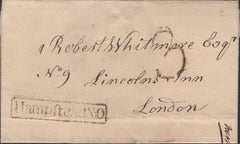 Robert Whitmore Esqr
No 9 Lincolns Inn
London
Hampstead